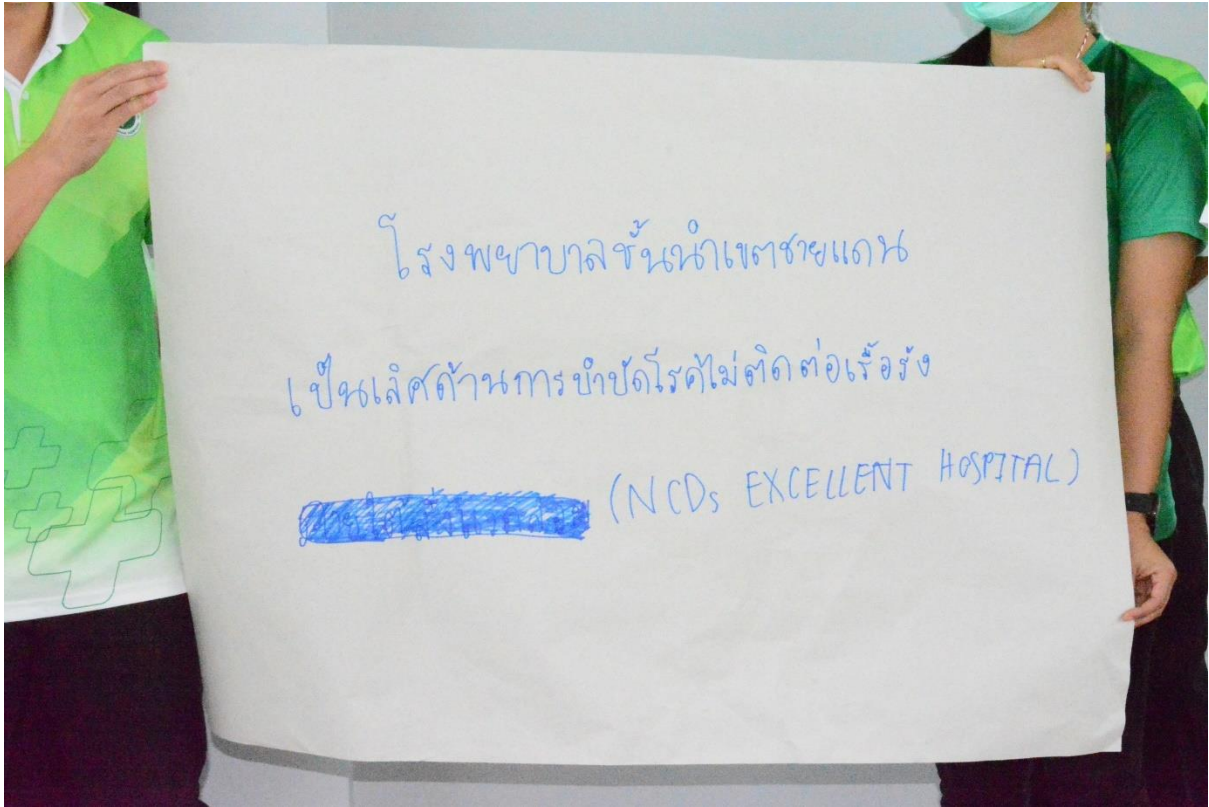 โรงพยาบาลชั้นนำเขตชายแดน
เป็นเลิศด้านการบำบัดโรคไม่ติดต่อเรื้อรัง
(NCDs EXCELLENT HOSPITAL)